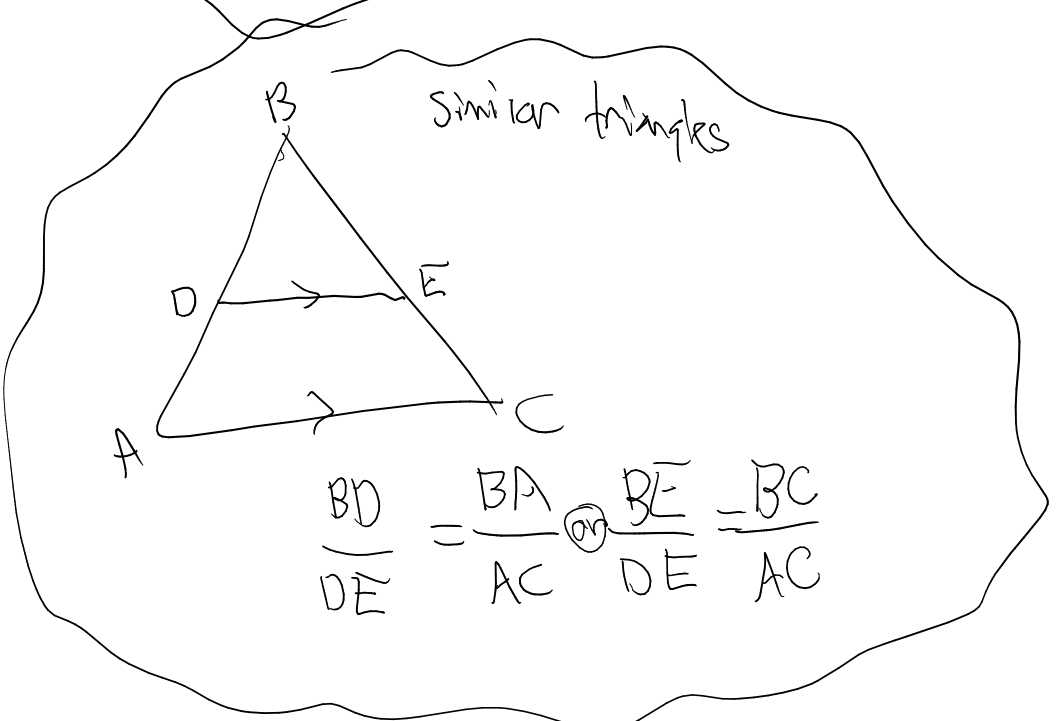 B
Similar triangles
D E
A C
BD/DE = BA/AC or BE/DE = BC/AC